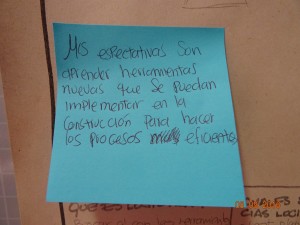 Mis espectativas son
aprender herramientas
nuevas que se puedan
implementar en la
construcción para hacer
los procesos más eficientes